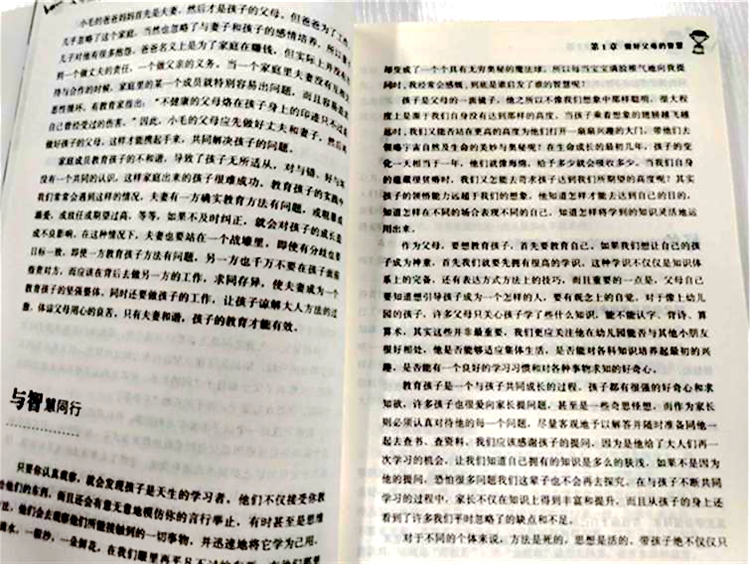 小毛的爸爸妈妈首先是夫妻，然后才是孩子的父母，但爸爸为了工作
几乎忽略了这个家庭，当然也忽略了与妻子和孩子的感情培养，所以妻
儿子对他有很多抱怨，爸爸名义上是为了家庭在赚钱，但实际上并没有
到一个做丈夫的责任，一个做父亲的义务。当一个家庭里夫妻没有互相
持与合作的时候，家庭里的某一个成员就特别容易出问题，而且容易
恶性循环，有教育家指出："不健康的父母烙在孩子身上的印迹只不过是
自己曾经受过的伤害。"因此，小毛的父母应先做好丈夫和妻子，然后再
做好孩子的父母，这样才能携起手来，共同解决孩子的问题。
家庭成员教育孩子的不和谐，导致了孩子无所适从，对与错、好与坏
没有一个共同的认识，这样家庭出来的孩子很难成功。教育孩子的实践中
我们常常会遇到这样的情况，夫妻有一方确实教育方法有问题，或粗暴或
溺爱，或放任或期望过高，等等，如果不及时纠正，就会对孩子的成长造
成不良影响，在这种情况下，夫妻也要站在一个战壕里，即使有分歧也要
目标一致，即使一方教育孩子方法有问题，另一方也千万不要在孩子面前
指责对方，而应该在背后去做另一方的工作，求同存异，使夫妻成为一个
教育孩子的坚强整体，同时还要做孩子的工作，让孩子谅解大人方法的过
激，体谅父母用心的良苦，只有夫妻和谐，孩子的教育才能有效。
与智慧同行
只要你认真观察，就会发现孩子是天生的学习者，他们不仅接受你教
给他们的东西，而且还会有意无意地模仿你的言行举止，有时甚至是思维
方法，他们会去观察他们所能接触到的一切事物，并迅速地将它学为己用。
滴水，一粒沙，一朵鲜花，在我们眼里再平凡不过的东西，在他们那里
第1章 做好父母的智慧
却变成了一个个具有无穷奥秘的魔法球。所以每当宝宝满脸稚气地向我提
问时，我经常会感慨，到底是谁启发了谁的智慧呢？
孩子是父母的一面镜子，他之所以不像我们想象中那样聪明，很大程
度上是源于我们自身没有达到那样的高度。当孩子乘着想象的翅膀越飞越
越时，我们又能否站在更高的高度为他们打开一扇扇兴趣的大门，带他们去
领略宇宙自然及生命的美妙与奥秘呢？在生命成长的最初几年，孩子的变
化一天相当于一年，他们就像海绵，给予多少就会吸收多少。当我们自身
的蕴藏很贫瘠时，我们又怎能去苛求孩子达到我们所期望的高度呢？其实
孩子的领悟能力远超于我们的想象，他知道怎样才能去达到自己的目的，
知道怎样在不同的场合表现不同的自己，知道怎样将学到的知识灵活地运
用出来。
作为父母，要想教育孩子，首先要教育自己，如果我们想让自己的孩
子成为神童，首先我们就要先拥有很高的学识，这种学识不仅仅是知识体
系上的完备，还有表达方式方法上的技巧，而且重要的一点是，父母自己
要知道想引导孩子成为一个怎样的人，要有观念上的自觉。对于像上幼儿
园的孩子，许多父母只关心孩子学了些什么知识，能不能认字、背诗、算
算术，其实这些并非最重要，我们更应关注他在幼儿园能否与其他小朋友
很好相处，他是否能够适应集体生活，是否能对各科知识培养起最初的兴
趣，是否能有一个良好的学习习惯和对各种事物求知的好奇心。
教育孩子是一个与孩子共同成长的过程，孩子都有很强的好奇心和求
知欲，许多孩子也很爱向家长提问题，甚至是一些奇思怪想，而作为家长
则必须认真对待他的每一个问题，尽量客观地予以解答并随时准备同他一
起去查书、查资料。我们应该感谢孩子的提问，因为是他给了大人们再一
次学习的机会，让我们知道自己拥有的知识是多么的狭浅，如果不是因为
他的提问，恐怕很多问题我们这辈子也不会再去探究。在与孩子不断共同
学习的过程中，家长不仅在知识上得到丰富和提升，而且从孩子的身上还
看到了许多我们平时忽略了的缺点和不足。
对于不同的个体来说，方法是死的，思想是活的。带孩子绝不仅仅只